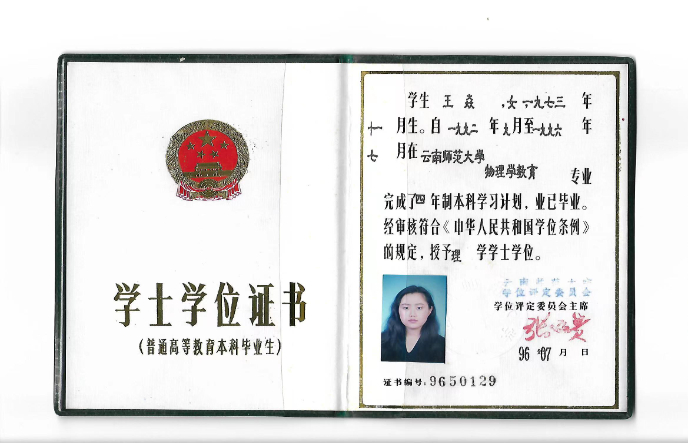 学士学位证书
(普通高等教育本科毕业生)
学生 王焱 ,女,一九七三 年
十一 月生。自一九九二 年九月至一九九六 年
七 月在云南师范大學
物理學教育 专业
完成了四 年制本科学习计划，业已毕业。
经审核符合《中华人民共和国学位条例》
的规定，授予理 学学士学位。
云南师范大学
学位评定委员会
学位评定委员会主席
96年07月 日
证书编号:9650129